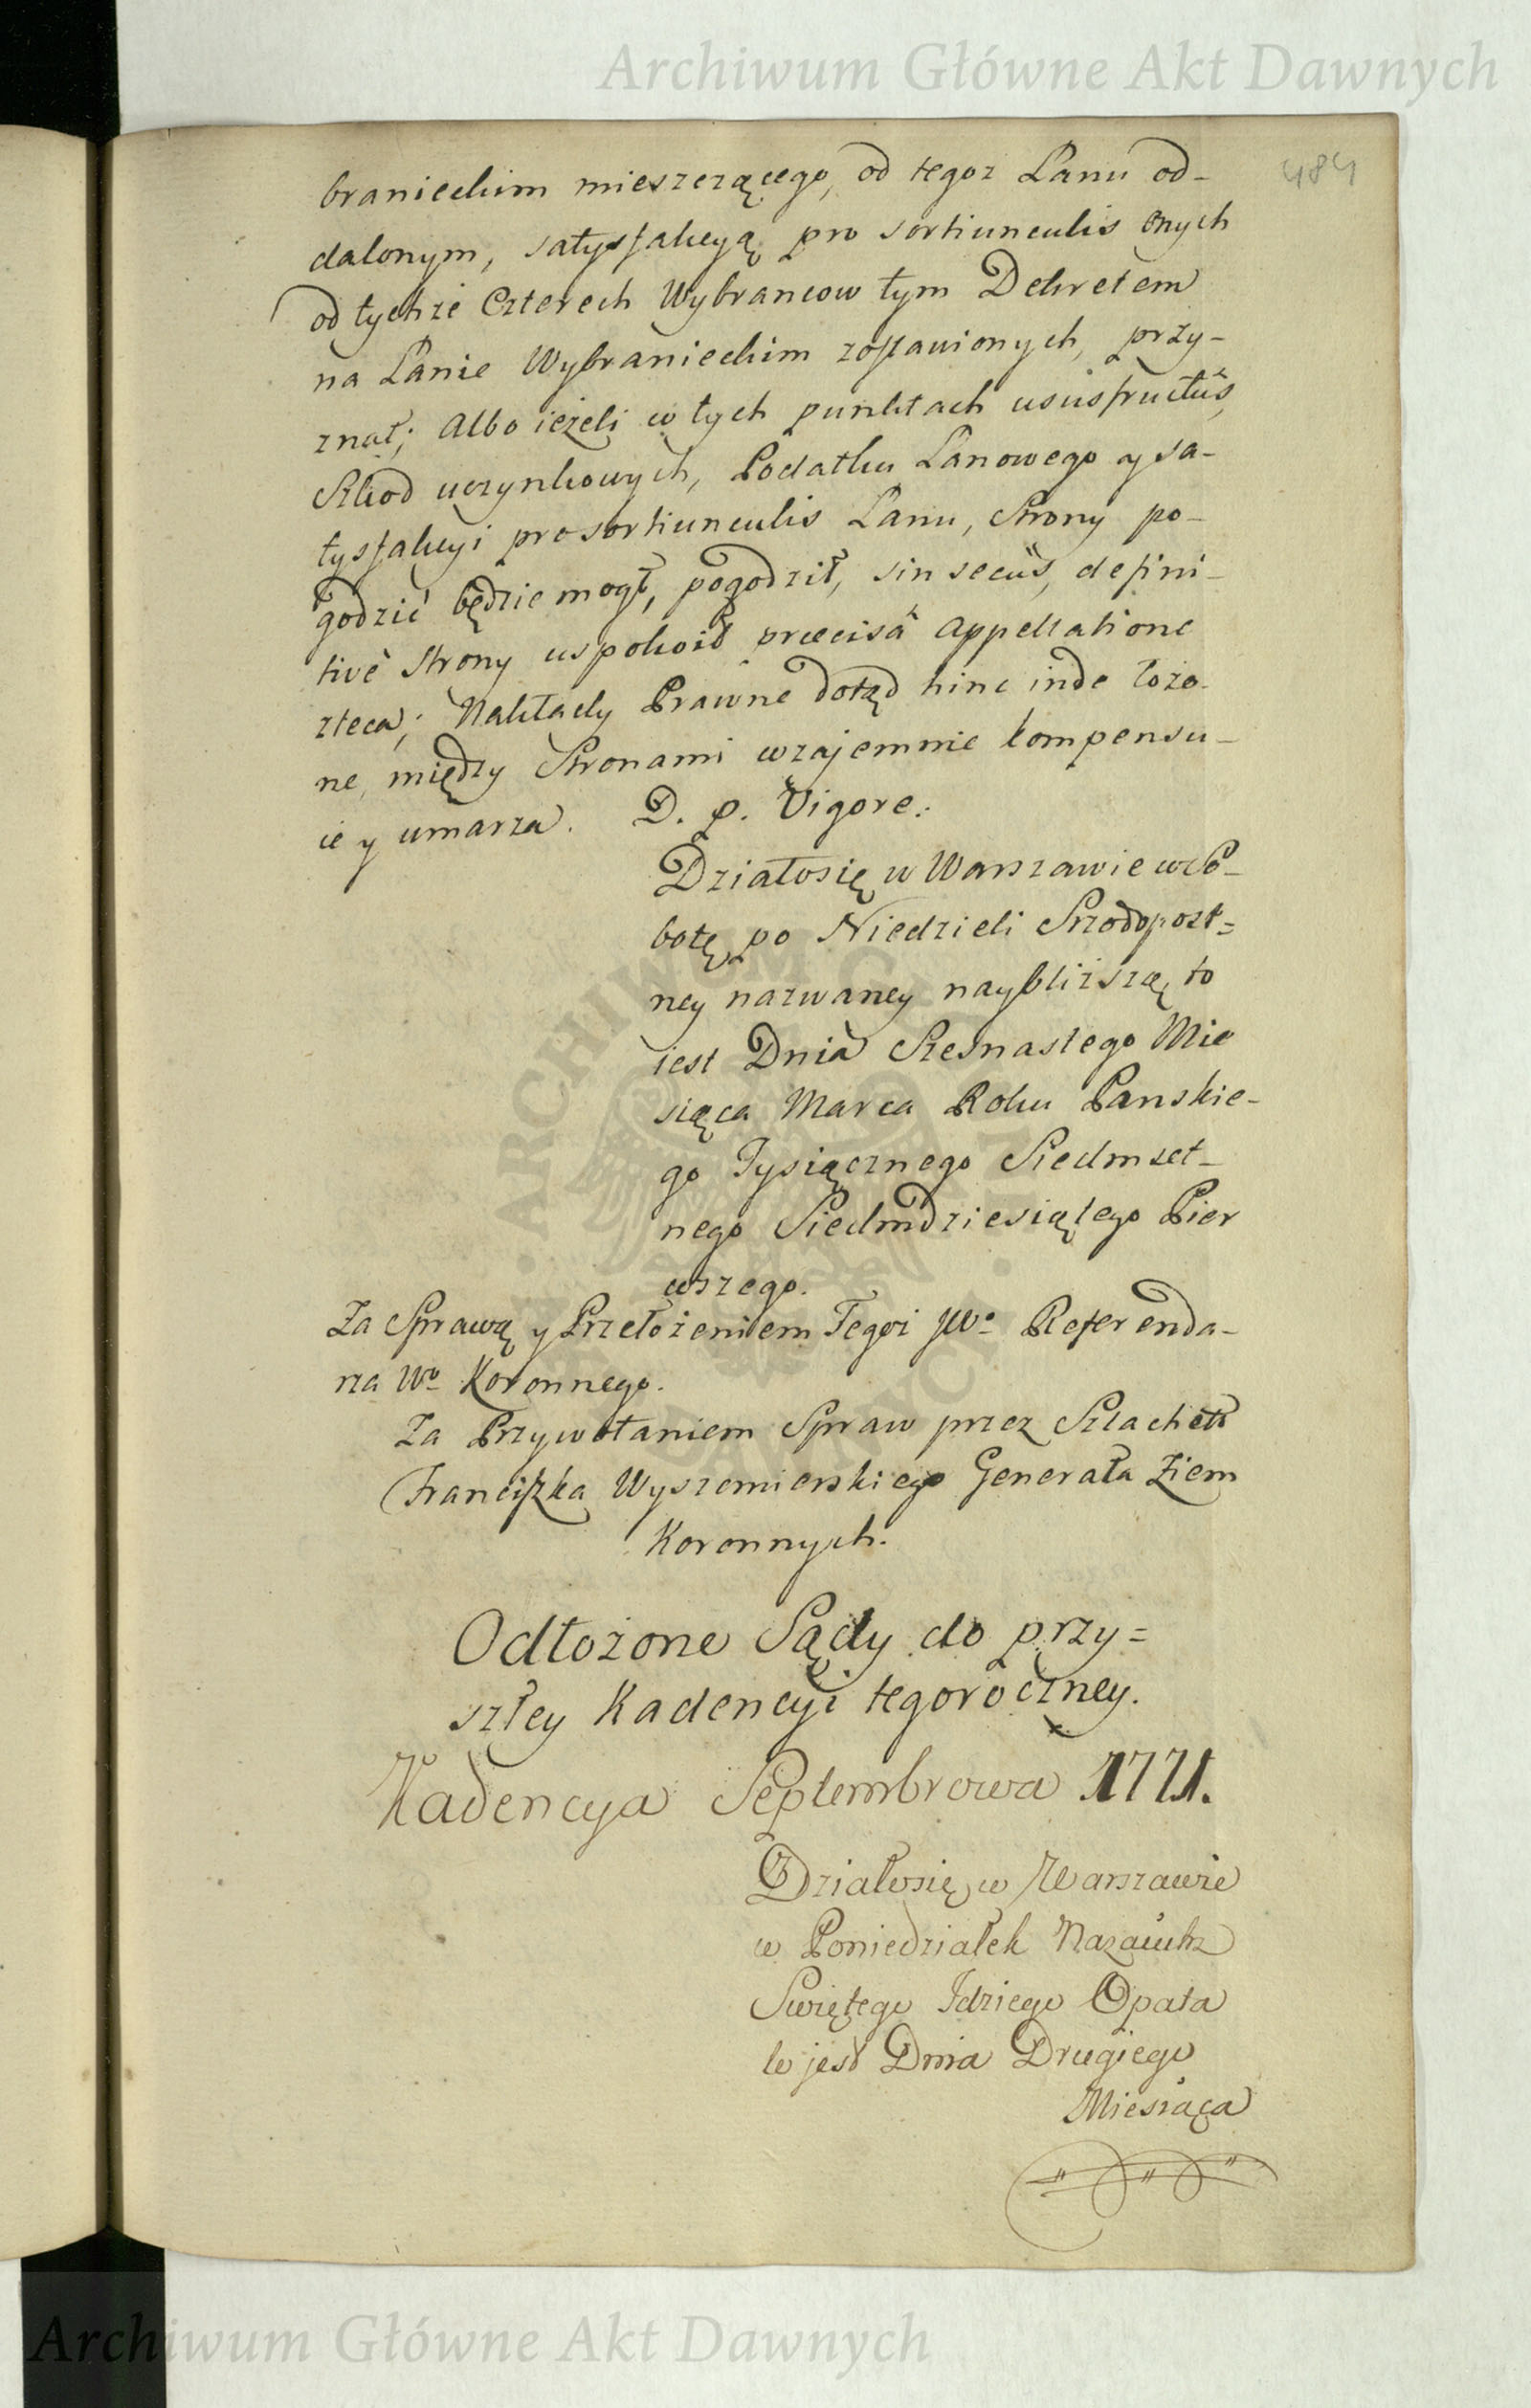 Archiwum Główne Akt Dawnych
484
branieckim mieszczącego, od tegoz Łanu od-
dalonym, satysfakcyą pro sortiunculis onych
od tychże Czterech Wybrancow tym Dekretem
na Łanie Wybranieckim zostawionych, przy-
znał; Albo ieżeli w tych punktach ususfructûs,
Szkod uczynkowych, Podatku Łanowego y sa-
tysfakcyi pro sortiunculis Łanu, Strony po-
godzić będzie mogł, pogodził, sin secùs, defini-
tivè Strony uspokoił præcisâ Appellatione
zleca; Nakłady Prawne dotąd hinc inde łożo-
ne, między Stronami wzajemnie kompensu-
ie y umarza. D. p. Vigore.
Działosię w Warszawie w So-
botę po Niedzieli Srzodopost=
ney nazwaney naybliższą to
iest Dnia Szesnastego Mie
siąca Marca Roku Panskie-
go Tysiącznego Siedmset-
nego Siedmdziesiątego Pier
wszego.
Za Sprawą y Przełożeniem Tegoż JWo Referenda-
rza Wo Koronnego.
Za Przywołaniem Spraw przez Szlachetł
Franciszka Wyszemierskiego Generała Ziem
Koronnych.
Odłożone Sądy do przy=
szłey Kadencyi tegoroczney.
Kadencya Septembrowa 1771.
Działosię w Warszawie
w Poniedziałek Nazaiutrz
Swiętego Idziego Opata
to jest Dnia Drugiego
Miesiąca
ARCHIWUM
Archiwum Główne Akt Dawnych